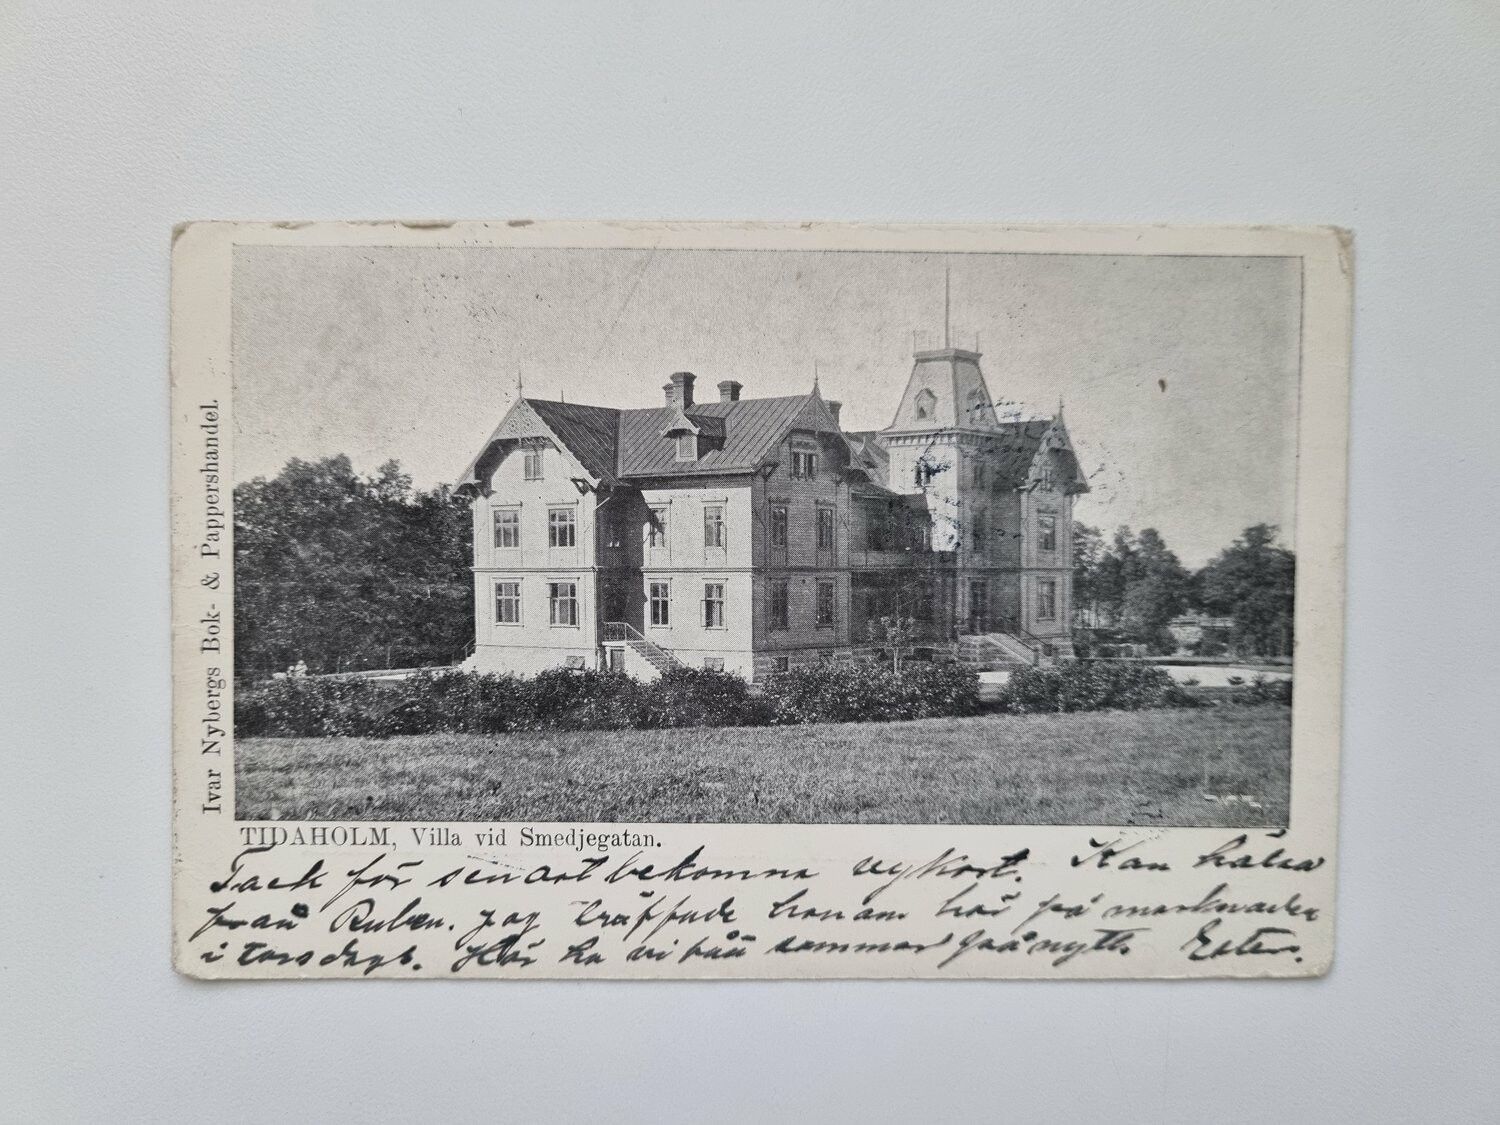 Ivar Nybergs Bok- & Pappershandel.
TIDAHOLM, Villa vid Smedjegatan.
Tack för senast bekomna vykort. Kan hälsa
från Ruben. jag träffade honom här på marknaden
i torsdags. Här ha vi sommar på nytt. Ester.